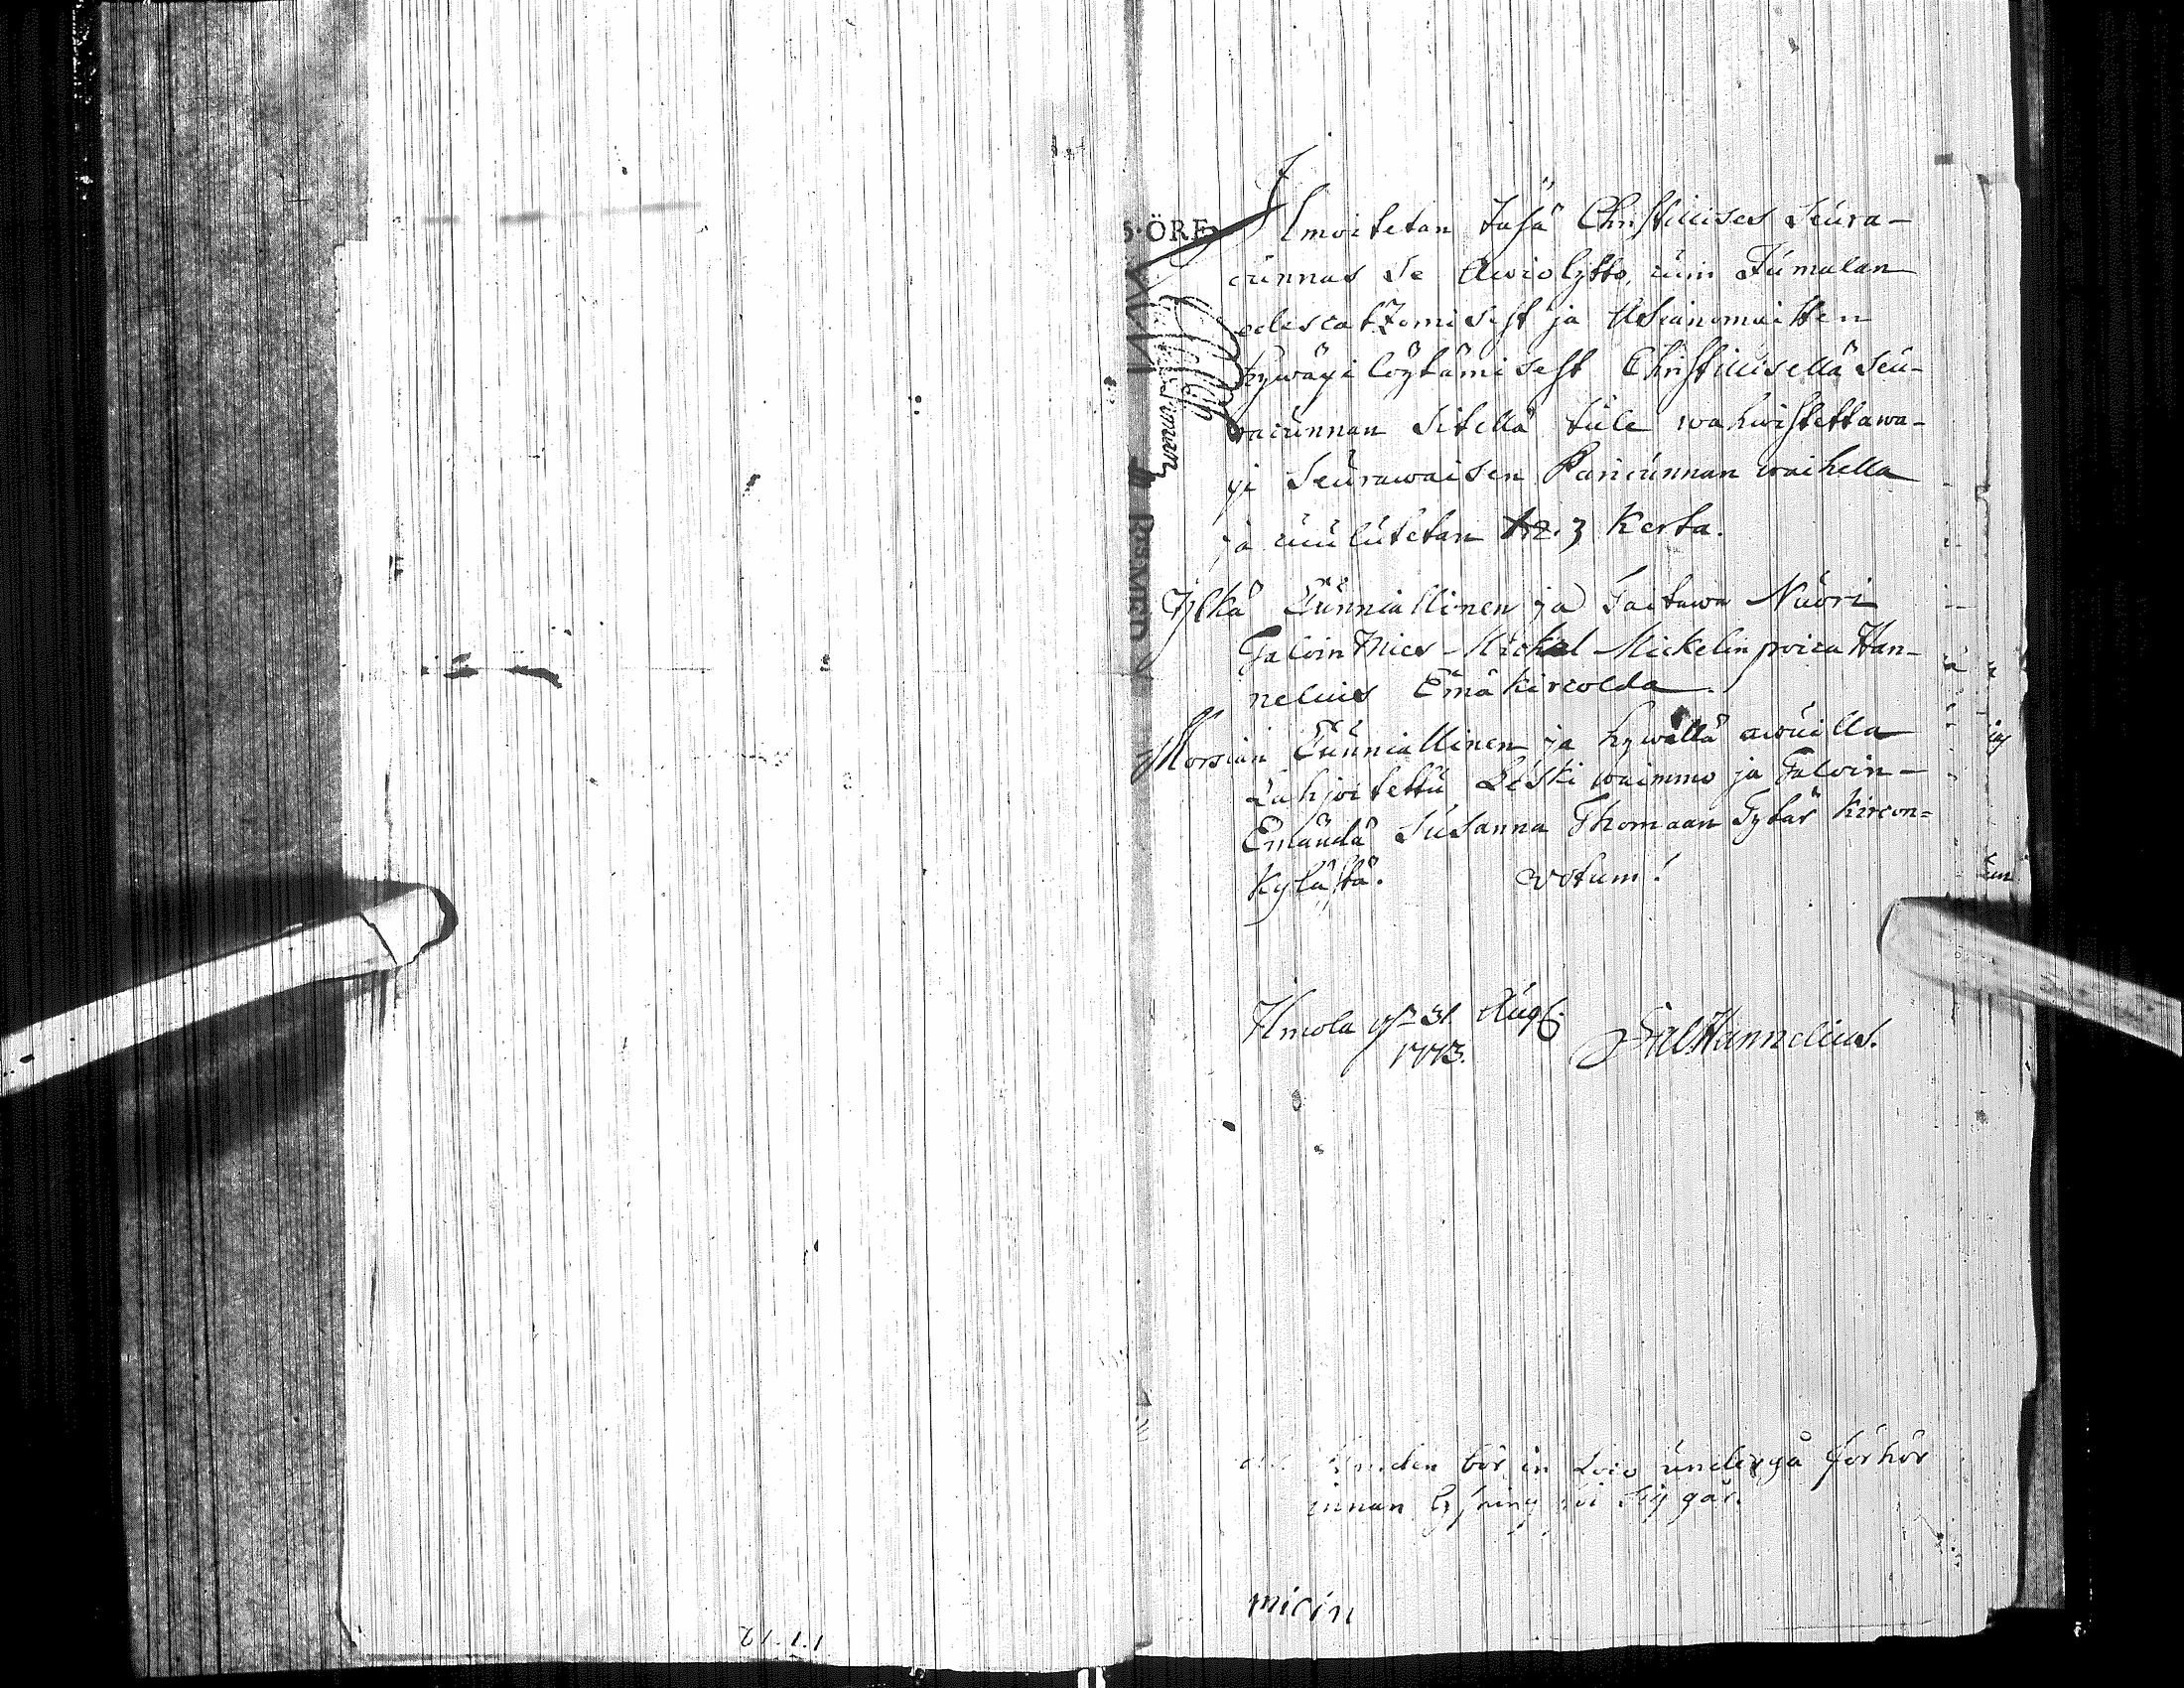 5·ÖRE
Ilmoitetan täsä Christilises Seura-
cunnas se Awiolijtto, cuin Jumalan
edescatzomisest ja Asianomaitten
hywäxi löytämisest Christilisellä Seu-
racunnan sitellä tule wahwistettawa-
xi Seurawaisen Pariscunnan waihella
ja cuulutetan 1.2.3 Kerta.
Ylkä Cunniallinen ja Taitawa Nuori
Taloin Mies Mickel Mickelin poica Han-
nelius Emäkircolda.
Morsian Cunniallinen ja hywillä awuilla
Lahjoitettu Leski waimmo ja Taloin-
Emändä Susanna Thomaan Tytär Kircon=
Kylästä. Votum!
Ilmola 31 Aug
1773. Hannelius.
bör in undergå förhör
innan lysning